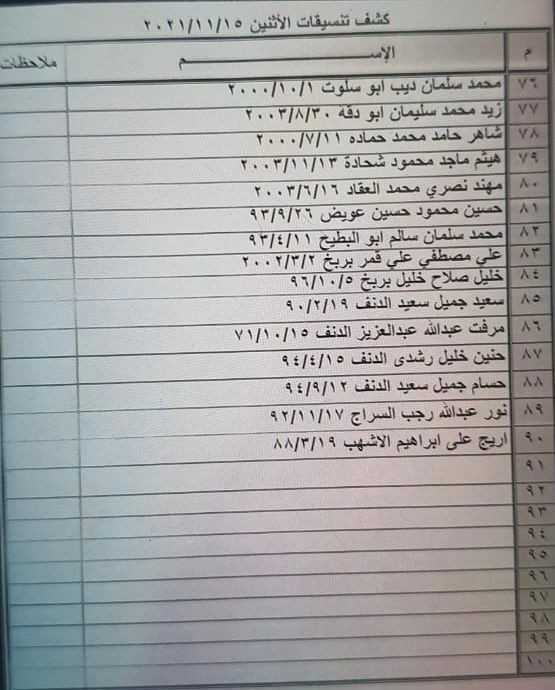 كشف تنسيقات الأثنين ٢٠٢١/١١/١٥
م الإســـم ملاحظات
٧٦ محمد سلمان ديب ابو سلوت ٢٠٠٠/١٠/١
٧٧ زيد محمد سليمان ابو دقة ٢٠٠٣/٨/٣٠
٧٨ شاهر حامد محمد حماده ٢٠٠٠/٧/١١
٧٩ هيثم ماجد محمود شحادة ٢٠٠٣/١١/١٣
٨٠ مهند نصري محمد العقاد ٢٠٠٣/٦/١٦
٨١ حسين محمود حسين عويض ٩٣/٩/٢٦
٨٢ محمد سلمان سالم ابو البطيخ ٩٣/٤/١١
٨٣ علي مصطفي علي قمر بربخ ٢٠٠٢/٣/٢
٨٤ خليل صلاح خليل بربخ ٩٦/١٠/٥
٨٥ سعيد جميل سعيد الدنف ٩٠/٢/١٩
٨٦ مرفت عبدالله عبدالعزيز الدنف ٧١/١٠/١٥
٨٧ حنين خليل رشدى الدنف ٩٤/٤/١٥
٨٨ حسام جميل سعيد الدنف ٩٤/٩/١٢
٨٩ نور عبدالله رجب السراج ٩٢/١١/١٧
٩٠ اريج على ابراهيم الاشهب ٨٨/٣/١٩
٩١
٩٢
٩٣
٩٤
٩٥
٩٦
٩٧
٩٨
٩٩
١٠٠